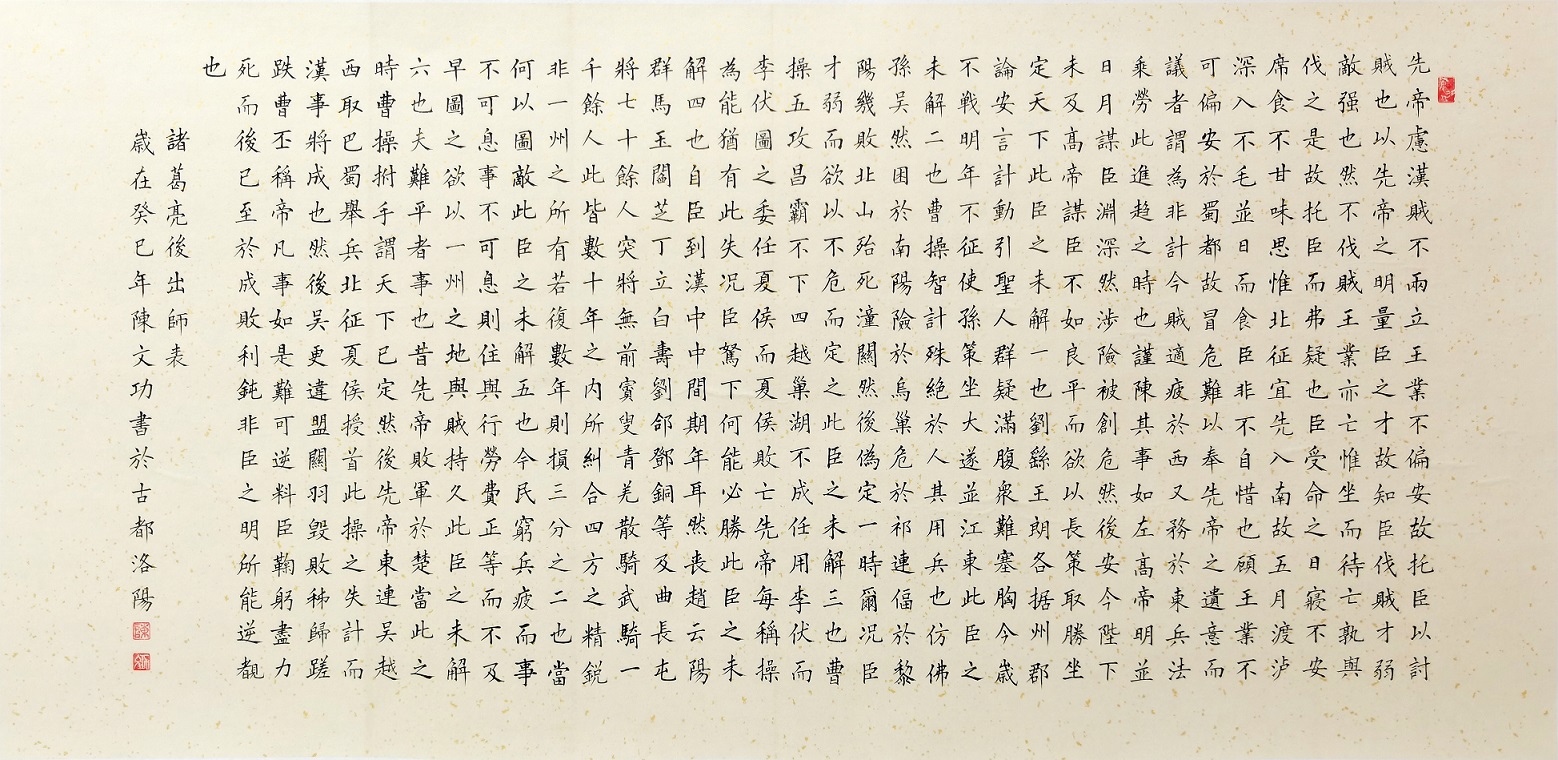 先帝慮漢賊不兩立王業不偏安故托臣以討
賊也以先帝之明量臣之才故知臣伐賊才弱
敵强也然不伐賊王業亦亡惟坐而待亡孰與
伐之是故托臣而弗疑也臣受命之日寢不安
席食不甘味思惟北征宜先入南故五月渡泸
深入不毛並日而食臣非不自惜也顧王業不
可偏安於蜀都故冒危難以奉先帝之遺意而
議者謂為非計今賊適疲於西又務於東兵法
乘勞此進趋之時也謹陳其事如左高帝明並
日月謀臣淵深然涉險被創危然後安今陛下
未及高帝謀臣不如良平而欲以長策取勝坐
定天下此臣之未解一也劉繇王朗各据州郡
論安言計動引聖人群疑滿腹衆難塞胸今歲
不戰明年不征使孫策坐大遂並江東此臣之
未解二也曹操智計殊絕於人其用兵也仿佛
孫吳然困於南陽險於烏巢危於祁連偪於黎
陽幾敗北山殆死潼關然後偽定一時爾況臣
才弱而欲以不危而定之此臣之未解三也曹
操五攻昌霸不下四越巢湖不成任用李伏而
李伏圖之委任夏侯而夏侯敗亡先帝每稱操
為能猶有此失况臣駑下何能必勝此臣之未
解四也自臣到漢中中間期年耳然丧趙云陽
群馬玉閻芝丁立白壽劉郃鄧銅等及曲長屯
將七十餘人突將無前賨叟青羌散騎武騎一
千餘人此皆數十年之内所糾合四方之精銳
非一州之所有若復數年則損三分之二也當
何以圖敵此臣之未解五也今民窮兵疲而事
不可息事不可息則住與行勞費正等而不及
早圖之欲以一州之地與賊持久此臣之未解
六也夫難平者事也昔先帝敗軍於楚當此之
時曹操拊手謂天下已定然後先帝東連吳越
西取巴蜀舉兵北征夏侯授首此操之失計而
漢事將成也然後吳更違盟關羽毀敗秭歸蹉
跌曹丕稱帝凡事如是難可逆料臣鞠躬盡力
死而後已至於成敗利鈍非臣之明所能逆覩
也
諸葛亮後出師表
歲在癸巳年陳文功書於古都洛陽